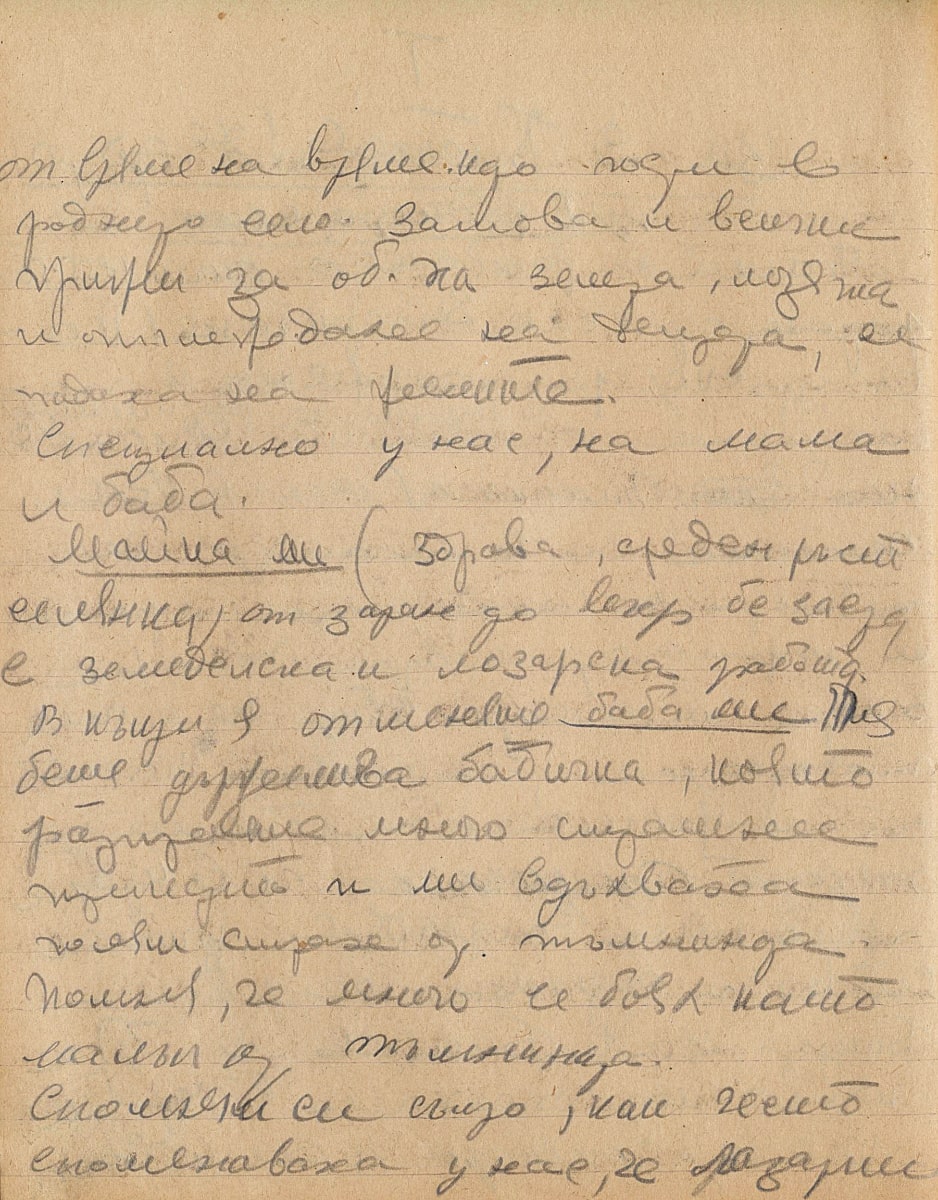 от време на време идо
родното село. Затова и всички
грижи за об. на земя, лозята
и отглеждане на децата, се
на жените.
Специално у нас, на мама
и баба.
Майка ми (здрава, среден ръст
селянка) от заран до вечер бе заета
с земеделска и лозарска работа.
В къщи я отменяше баба ми Тя
беше дружелива бабичка, която
разправяше много страшнее
и ми вдъхваха
голям страх от тъмнината
Помня, че много се боях като
малък от тъмнината.
Спомням си също, как често
споменаваха у нас, че